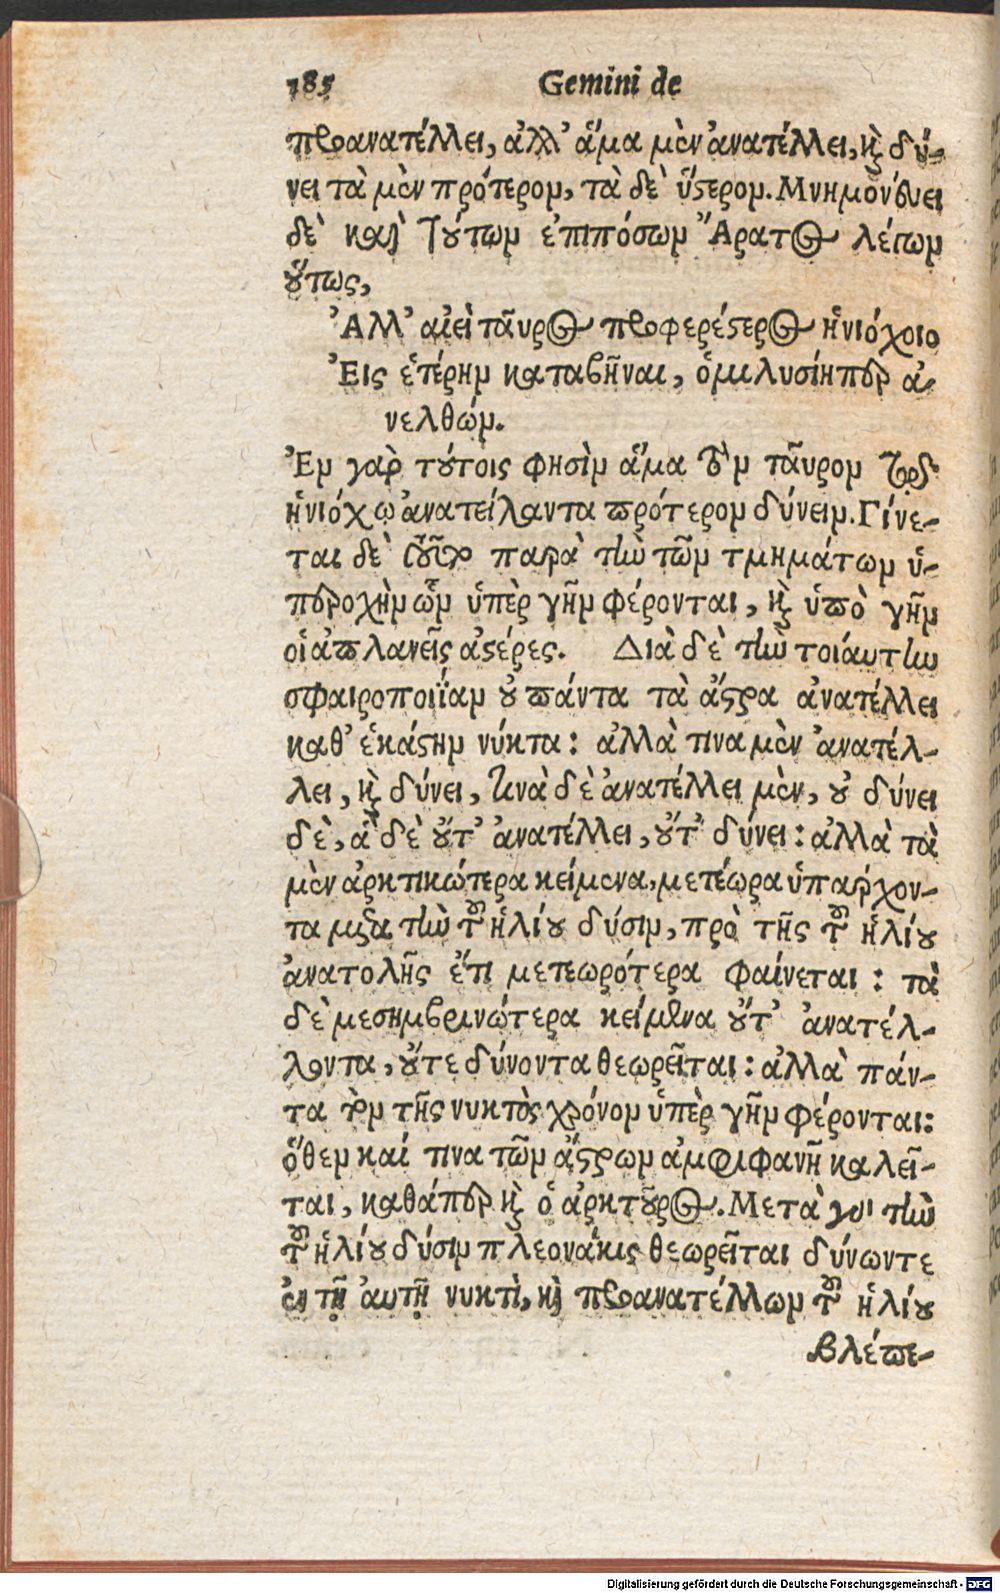 185 Gemini de
προανατέλλει, ἀλλ’ ἅμα μὲν ἀνατέλλει, καὶ δύ-
νει τὰ μὲν πρότερομ, τὰ δὲ ὕστερομ. Μνημονεύει
δὲ καὶ τούτωμ ἐπιπόσωμ Ἄρατος λέγωμ
οὕτως,
Ἀλλ’ αἰεὶ ταῦρος προφερέστερος ἡνιόχοιο
Ἐις ἑτέρημ καταβῆναι, ὁμηλυσίηπερ ἀ-
νελθώμ.
Ἐμ γὰρ τούτοις φησὶμ ἅμα τὸμ ταῦρομ τῷ
ἡνιόχῳ ἀνατείλαντα πρότερομ δύνειμ. Γίνε-
ται δὲ τοῦτο παρὰ τὴν τῶμ τμημάτωμ ὑ-
περοχὴμ ὧμ ὑπὲρ γῆμ φέρονται, καὶ ὑπὸ γῆμ
οἱ ἀπλανεῖς ἀστέρες. Διὰ δὲ τὴν τοιάυτην
σφαιροποιΐαμ οὐ πάντα τὰ ἄστρα ἀνατέλλει
καθ’ ἑκάστημ νύκτα: ἀλλὰ τινα μὲν ἀνατέλ-
λει, καὶ δύνει, τινὰ δὲ ἀνατέλλει μὲν, οὐ δύνει
δὲ, ἃ δὲ οὔτ’ ἀνατέλλει, οὔτ’ δύνει: ἀλλὰ τὰ
μὲν ἀρκτικώτερα κείμενα, μετέωρα ὑπάρχον-
τα μετὰ τὴν τοῦ ἡλίου δύσιμ, πρὸ τῆς τοῦ ἡλίου
ἀνατολῆς ἔτι μετεωρότερα φαίνεται: τὰ
δὲ μεσημβρινώτερα κείμενα οὔτ’ ἀνατέλ-
λοντα, οὔτε δύνοντα θεωρεῖται: ἀλλὰ πάν-
τα τὸμ τῆς νυκτὸς χρόνομ ὑπὲρ γῆμ φέρονται:
ὅθεμ καί τινα τῶμ ἄστρωμ ἀμφιφανῆ καλεῖ-
ται, καθάπερ καὶ ὁ ἀρκτοῦρος. Μετὰ γὰρ τὴν
τοῦ ἡλίου δύσιμ πλεονάκις θεωρεῖται δύνωντε
ἐν τῇ ἀυτῇ νυκτὶ, καὶ προανατέλλωμ τοῦ ἡλίου
βλέπε-
Digitalisierung gefördert durch die Deutsche Forschungsgemeinschaft - DFG